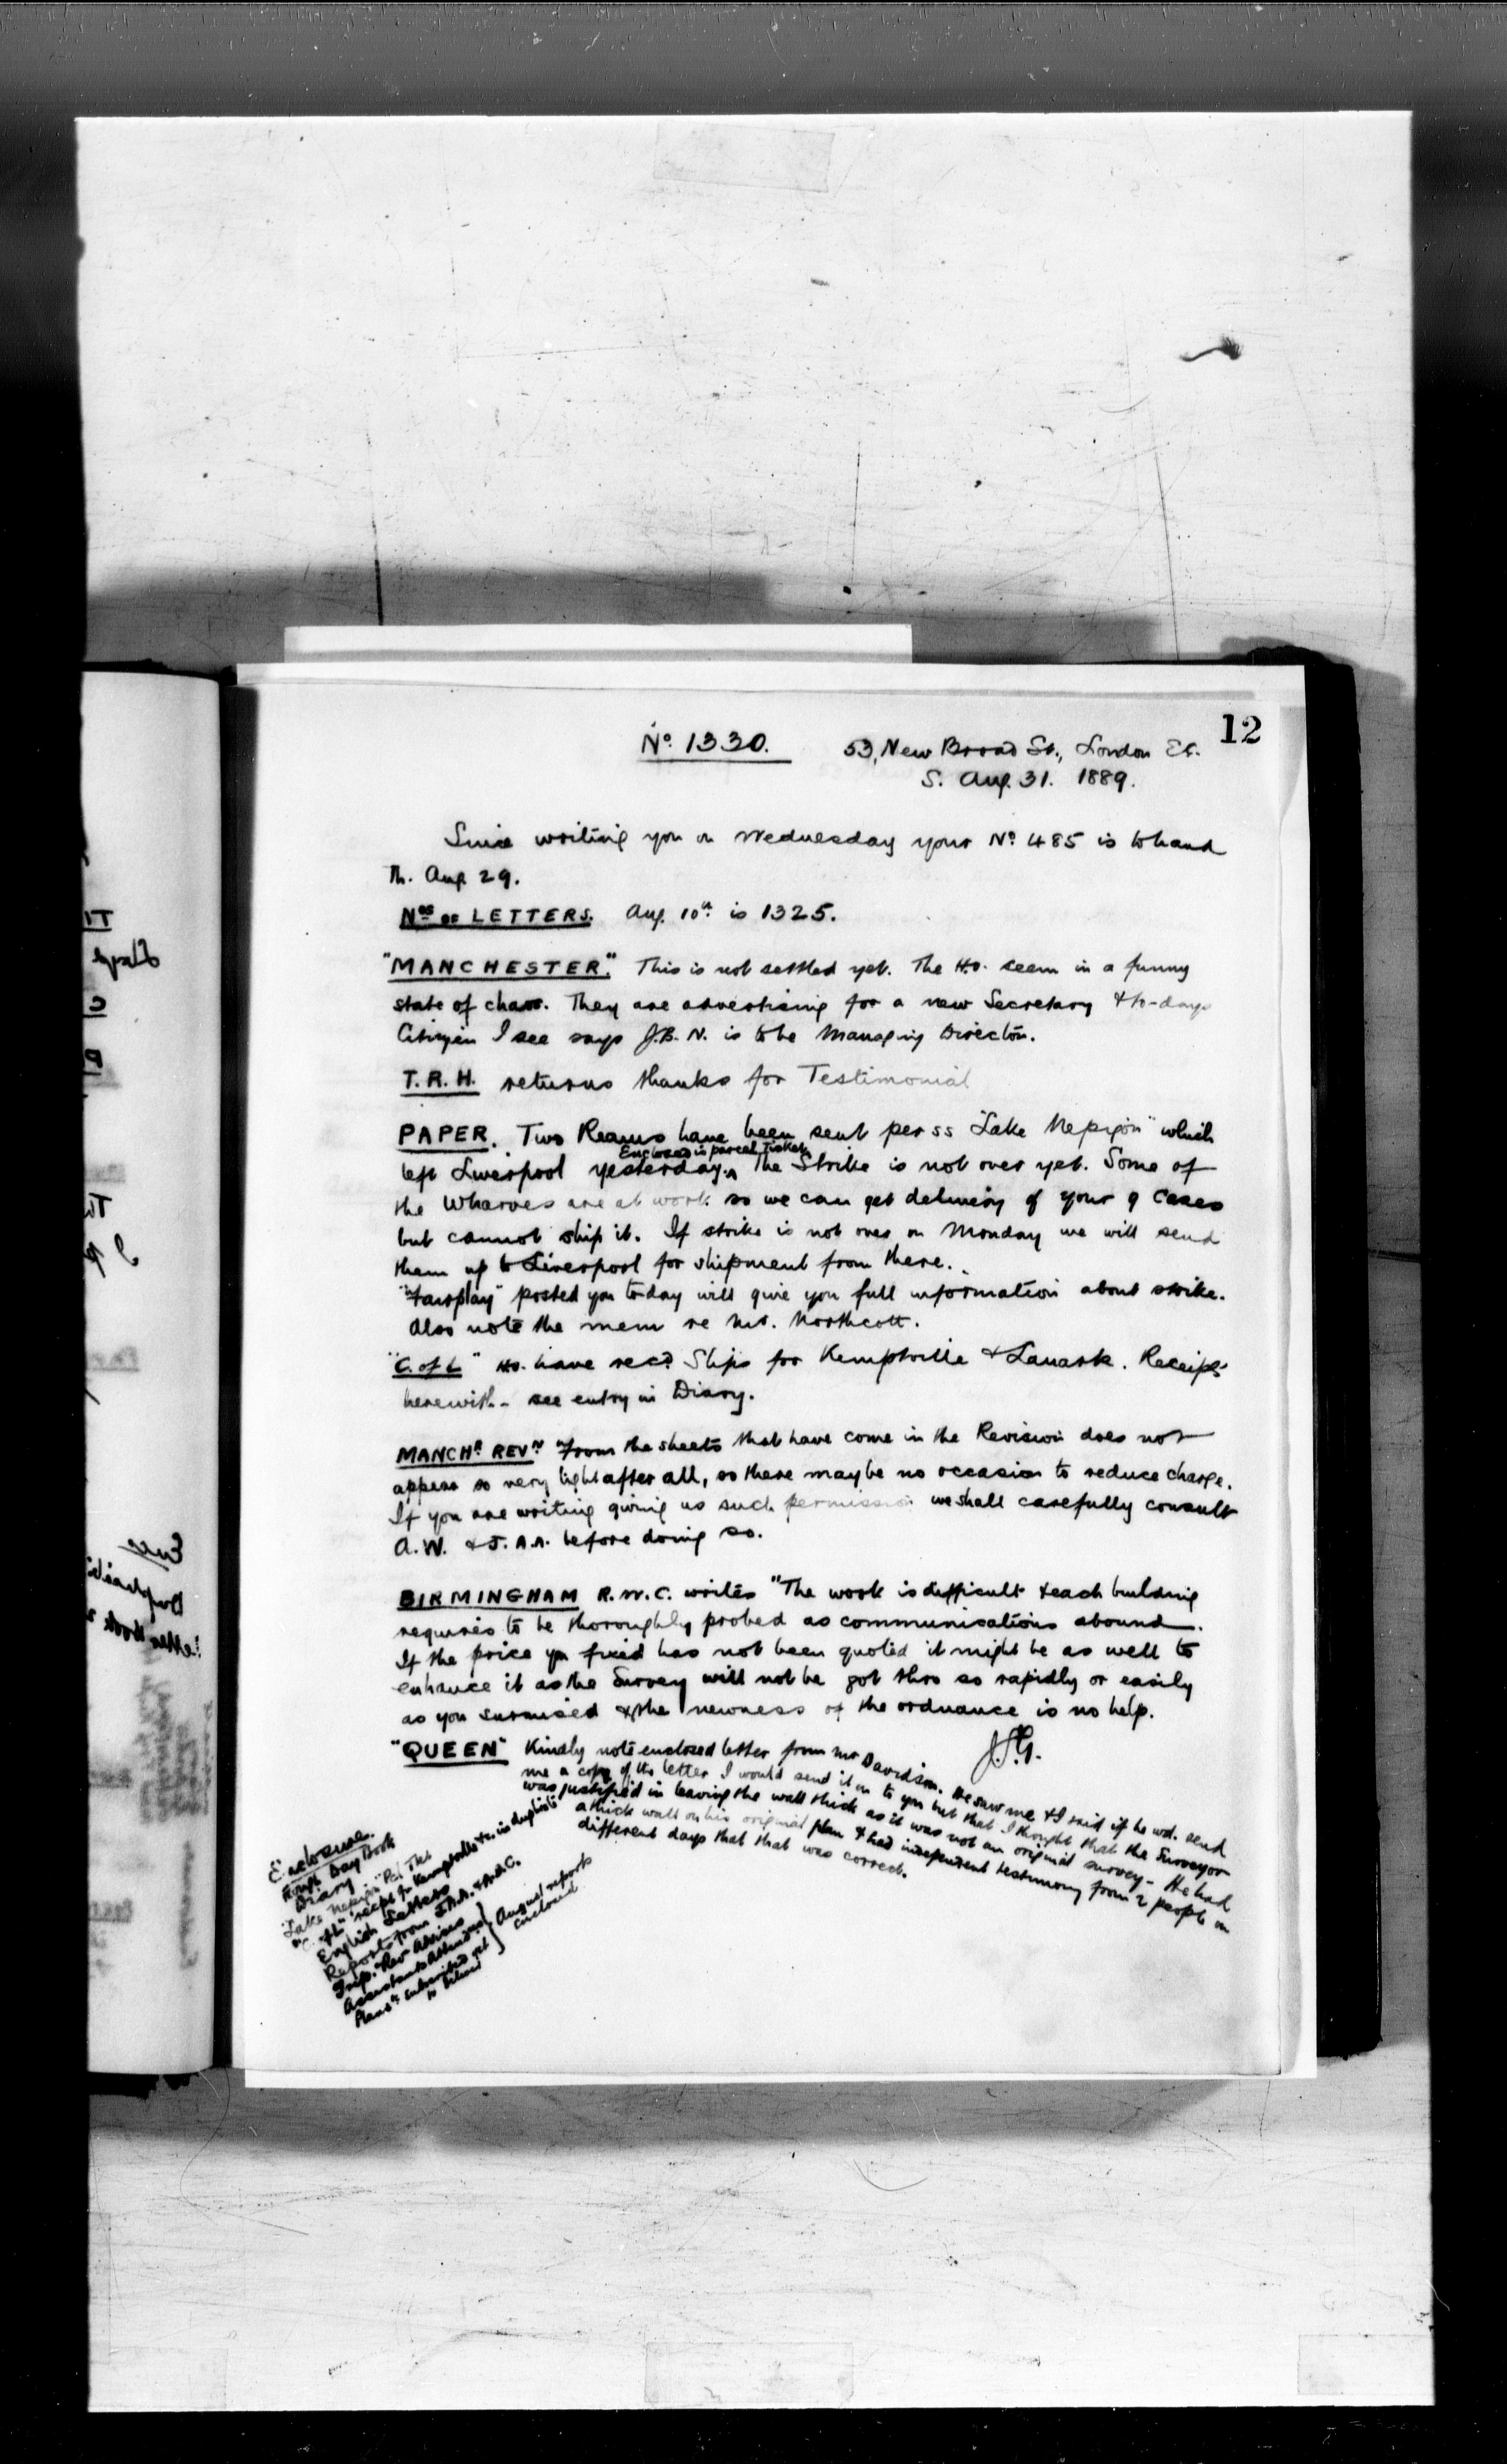 12
No. 1330.
53, New Broad St., London E.C.
S. Aug. 31. 1889.
Since writing you on Wednesday your No. 485 is to hand
Th. Aug 29.
Nos of LETTERS. Aug. 10th is 1325.
"MANCHESTER." This is not settled yet. The H.O. seem in a funny
state of chaos. They are advertising for a new Secretary & to-days
Citizen I see says J.B.N. is to be Managing Director.
T.R.H. returns thanks for Testimonial
PAPER. Two Reams have been sent per ss "Lake Nepigon" which
Enclosed is parcel ticket
left Liverpool yesterday. The Strike is not over yet. Some of
the Wharves are at work so we can get delivery of your 9 Cases
but cannot ship it. If strike is not over on Monday we will send
them up to Liverpool for shipment from there.
"Fairplay" posted you to-day will give you full information about strike.
Also note the mem re Mr. Northcott.
"C. of L" Ho. have recd Slips for Kemptville & Lanark. Receipts
herewith - see entry in Diary.
MANCHR REVN From the sheets that have come in the Revision does not
appear so very light after all, so there may be no occasion to reduce charge.
If you are writing giving us such permission we shall carefully consult
A.W. & J.A.A. before doing so.
BIRMINGHAM R.W.C. writes "The work is difficult & each building
requires to be thoroughly probed as communications abound.
If the price you fixed has not been quoted it might be as well to
enhance it as the Survey will not be got thro so rapidly or easily
as you surmised & the newness of the ordnance is no help.
"QUEEN" Kindly note enclosed letter from Mr Davidson. He saw me & I said if he wd. send
me a copy of the letter I would send it on to you but that I thought that the Surveyor
was justified in leaving the wall thick as it was not an original survey - He had
a thick wall on his original plan & had independent testimony from 2 people on
different days that that was correct.
Enclosures.
Rough Day Book
Diary
"Lake Nepigon" Pcl Tkt
"C. of L" recpt for Kemptville &c. in duplicate
English Letters
Reports from J.A.A. & R.W.C.
Insp. Rev Advices
Assistants Attendance
August reports
enclosed
Plans submitted yet